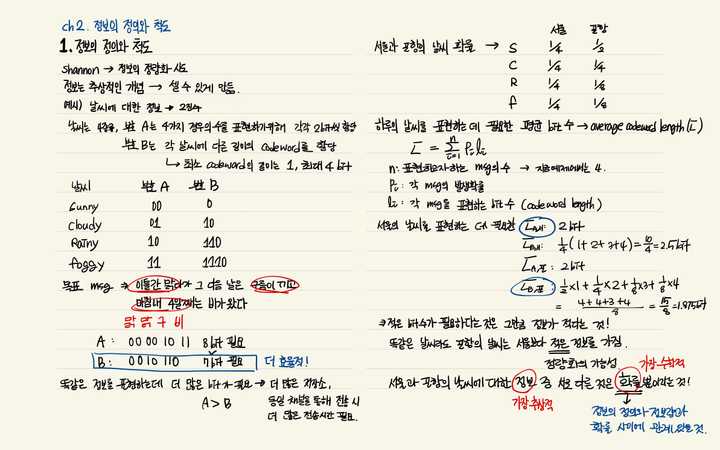 ch2. 정보의 정의와 척도
1. 정보의 정의와 척도
Shannon → 정보의 정량화 시도
정보는 추상적인 개념 → 셀 수 있게 만듦.
예시) 날씨에 대한 정보 → 2진수
날씨는 4종류, 부호 A는 4가지 경우의 수를 표현하기 위해 각각 2bit씩 할당
부호 B는 각 날씨에 다른 길이의 codeword를 할당
↳ 최소 codeword의 길이는 1, 최대 4bit
날씨 부호 A 부호 B
Sunny 00 0
Cloudy 01 10
Rainy 10 110
foggy 11 1110
목표 msg → 이틀간 맑다가 그 다음 날은 구름이 끼고
마침내 4일째는 비가 왔다
맑 맑 구 비
A : 00 00 01 10 11 8bit 필요
B : 0 0 10 110 7bit 필요 더 효율적!
똑같은 정보를 표현하는데 더 많은 bit가 필요 → 더 많은 저장소,
A > B 동일 채널을 통해 전송 시
더 많은 전송시간 필요.
서울 포항
서울과 포항의 날씨 확률 → S 1/4 1/2
C 1/4 1/4
R 1/4 1/8
f 1/4 1/8
하루의 날씨를 표현하는 데 필요한 평균 bit 수 → average codeword length (L̄)
L̄ = Σ Pᵢlᵢ
n: 표현하고자 하는 msg의 수 → 지금 예제에서는 4.
Pᵢ: 각 msg의 발생확률
lᵢ: 각 msg를 표현하는 bit 수 (codeword length)
서울의 날씨를 표현하는 데 필요한 L̄A,서: 2bit
L̄B,서: 1/4 (1+2+3+4) = 10/4 = 2.5bit
L̄A,포: 2bit
L̄B,포: 1/2×1 + 1/4×2 + 1/8×3 + 1/8×4
= 4+4+3+4 / 8 = 15/8 = 1.875bit
→ 적은 bit수가 필요하다는 것은 그만큼 정보가 적다는 것!
똑같은 날씨라도 포항의 날씨는 서울보다 적은 정보를 가짐.
정량화의 가능성
가장 수학적
서울과 포항의 날씨에 대한 정보 중 서로 다른 것은 확률분포라는 것!
가장 추상적
정보의 정의와 정보량과
확률 사이에 관계 있을 것.